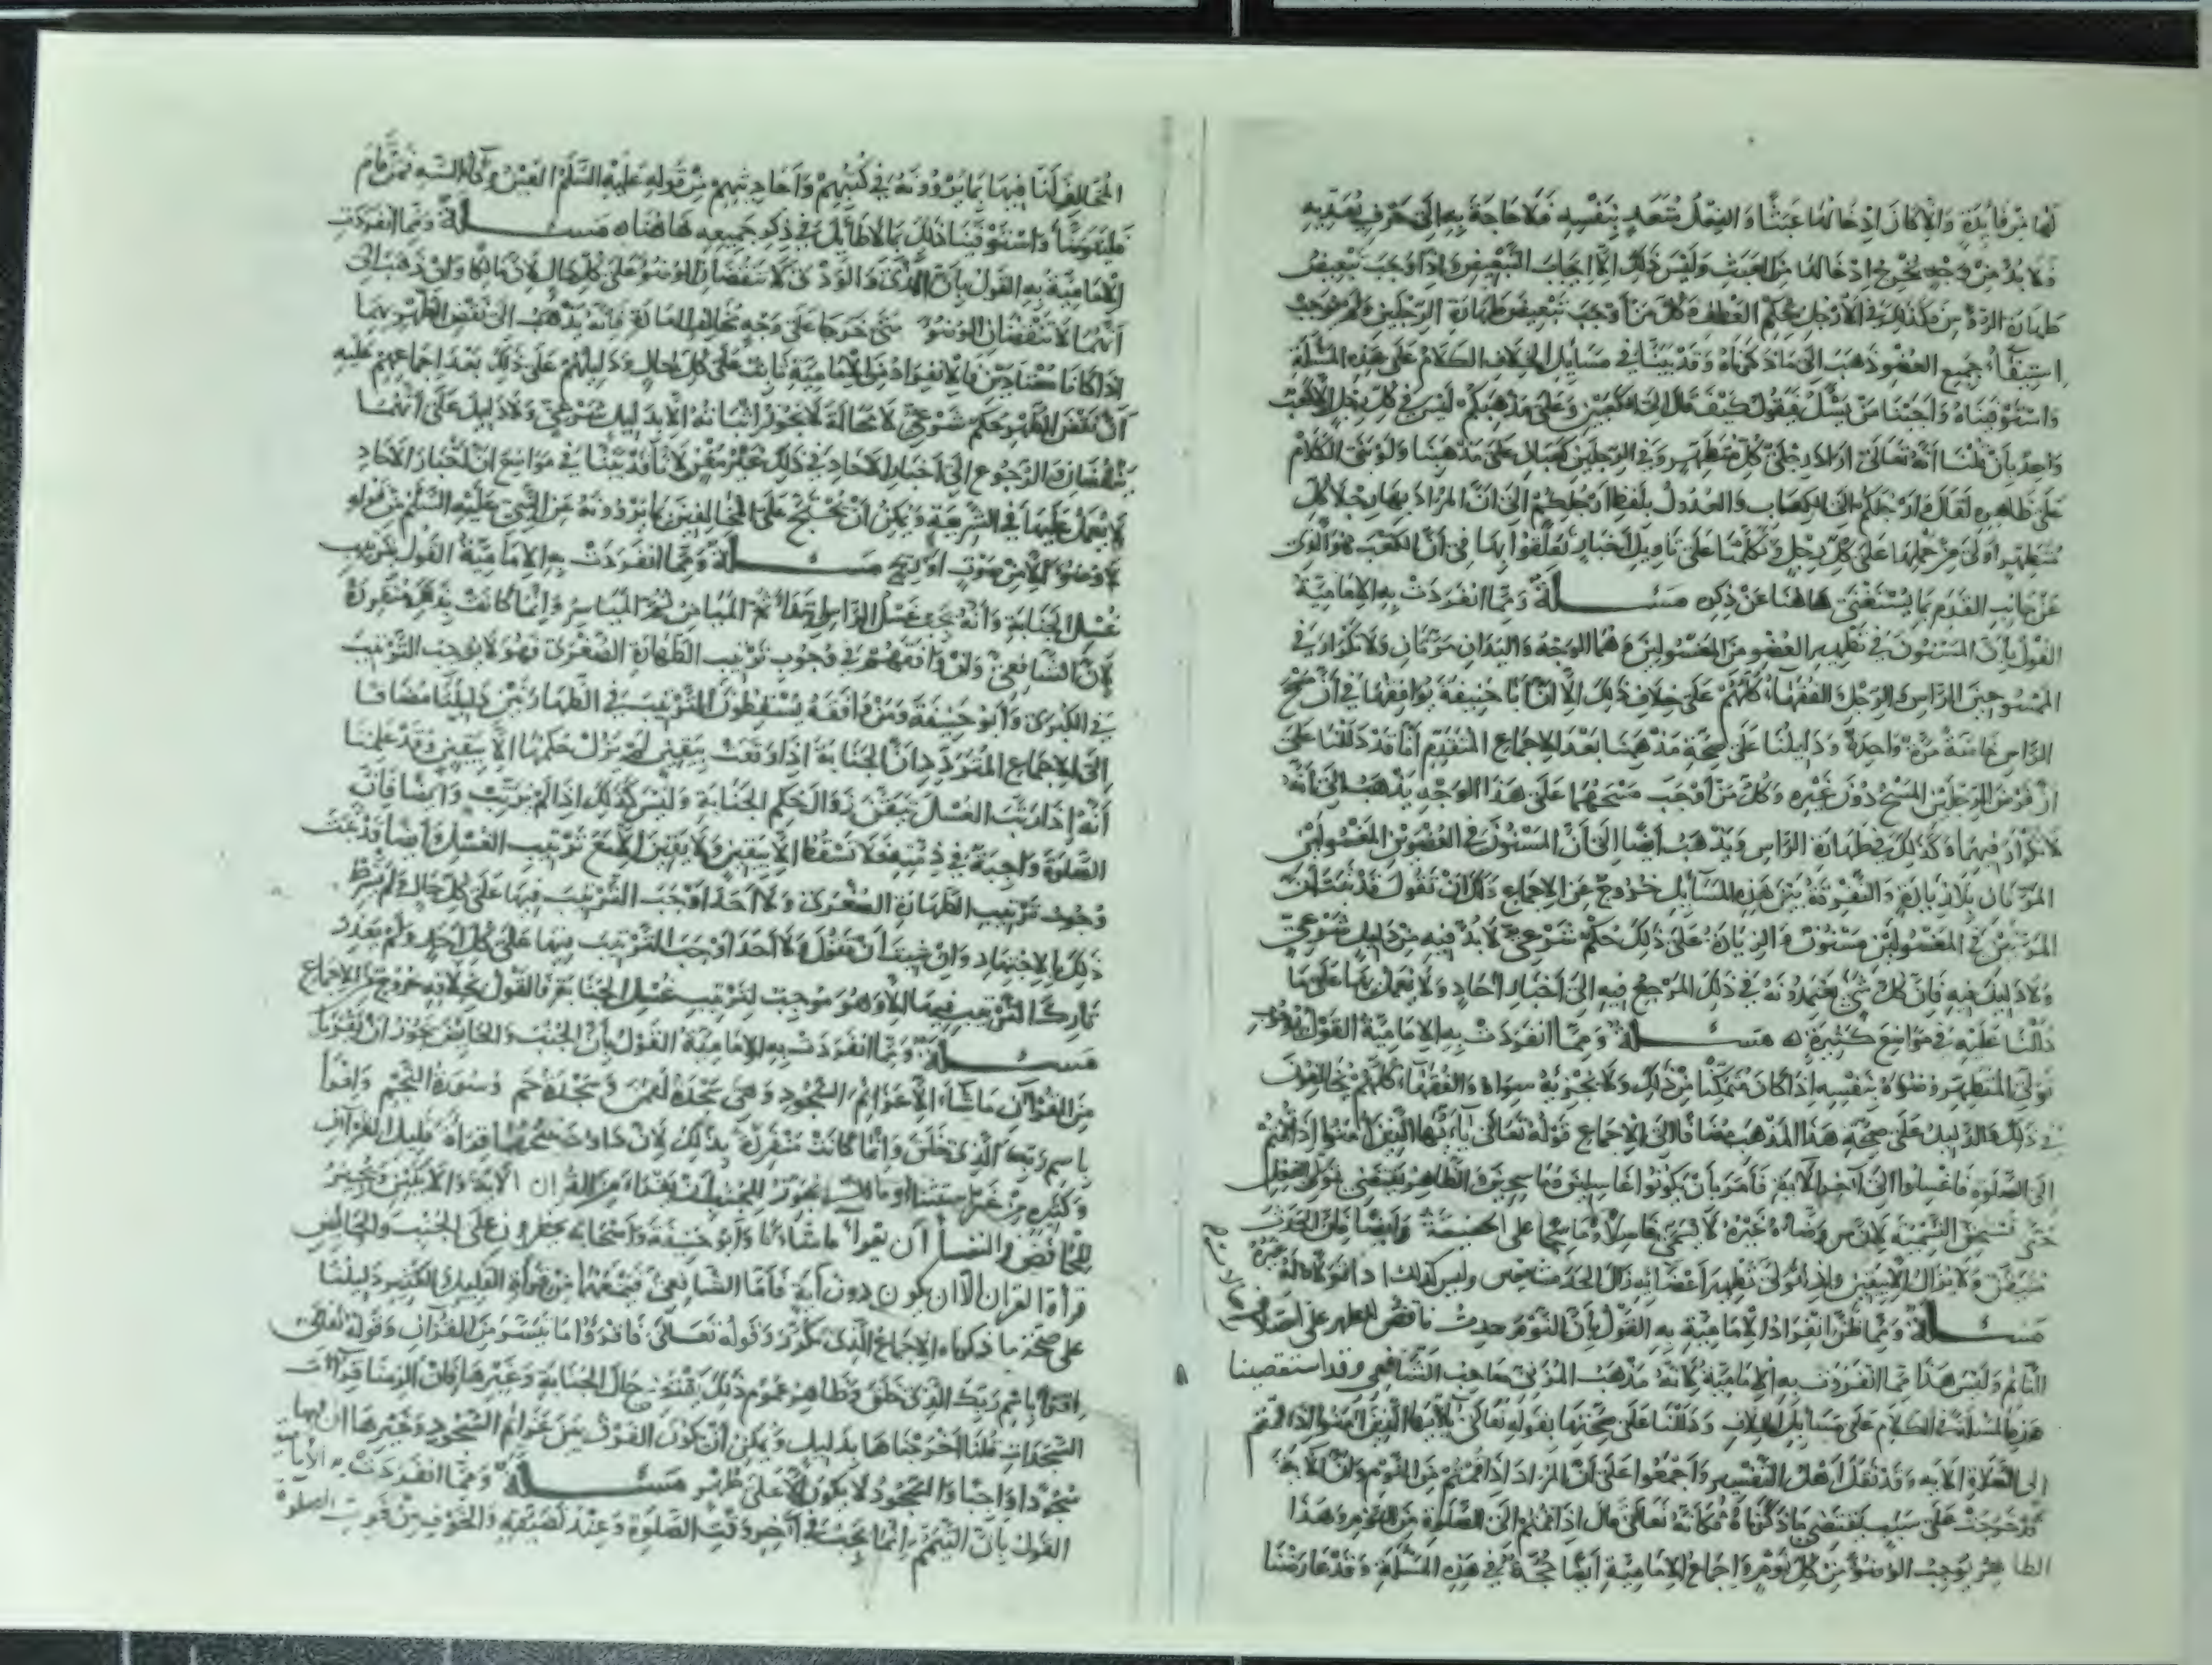 لها من فائدة والا كان ادخالها عبثا والفعل متعد بنفسه فلا حاجة به الى حرف تعديه
ولا بد من وجه يخرج ادخالها من العبث وليس ذلك الا ايجاب التبعيض واذا وجب تبعيض
طهارة الرؤس فكذلك في الارجل بحكم العطف وكل من اوجب تبعيض طهارة الرجلين ولم يوجب
استيفاء جميع العضو ذهب الى ما ذكرناه وقد بينا في مسايل الخلاف الكلام على هذه المسئلة
واستوفيناه واجبنا من يسئل فيقول كيف قال الى الكعبين وعلى مذهبكم ليس في كل رجل الا كعب
واحد بان قلنا انه تعالى اراد رجلي كل متطهر وفي الرجلين كعبان على مذهبنا ولو بنى الكلام
على ظاهره لقال وارجلكم الى الكعاب والعدول بلفظ ارجلكم الى ان المراد بها رجلا كل
متطهر اولى من حملها على كل رجل وتكلمنا على تاويل اخبار تعلقوا بها في ان الكعب هو الذي
عن جانب القدم بما يستغنى هاهنا عن ذكره مسئلة ومما انفردت به الامامية
القول بان المسنون في تطهير العضوين المغسولين وهما الوجه واليدان مرتان ولا تكرار في
الممسوحين الراس والرجل والفقهاء كلهم على خلاف ذلك الا ان ابا حنيفة يوافقها في ان مسح
الراس خاصة مرة واحدة ودليلنا على صحة مذهبنا بعد الاجماع المتقدم انا قد دللنا على
ان فرض الرجلين المسح دون غيره وكل من اوجب مسحهما على هذا الوجه يذهب الى انه
لا تكرار فيهما وكذلك في طهارة الراس ويذهب ايضا الى ان المسنون في العضوين المغسولين
المرتان بلا زيادة والتفرقة بين هذه المسايل خروج عن الاجماع ولك ان تقول قد ثبت ان
المرتين في المغسولين مسنون والزيادة على ذلك حكم شرعي لا بد فيه من دليل شرعي
ولا دليل فيه فان كل شيء يعتمدونه في ذلك المرجع فيه الى اخبار احاد ولا يعمل بها على ما
دللنا عليه في مواضع كثيرة مسئلة ومما انفردت به الامامية القول بوجوب
تولي المتطهر وضوءه بنفسه اذا كان متمكنا من ذلك ولا يجزيه سواه والفقهاء كلهم يخالفون
في ذلك والدليل على صحة هذا المذهب مضافا الى الاجماع قوله تعالى يا ايها الذين امنوا اذا قمتم
الى الصلوة فاغسلوا الى آخر الآية فامر بان يكونوا غاسلين وماسحين والظاهر يقتضي تولي الفعل
حتى تستحق التسمية لان من وضاه غيره لا يسمى غاسلا وماسحا على الحقيقة وايضا فان الحدث
متيقن ولا يزول الا بيقين واذا تولى تطهير اعضايه زال الحدث بيقين وليس كذلك اذا تولاه له غيره
مسئلة ومما ظن انفراد الامامية به القول بان النوم حدث ناقض للطهر على اختلاف حالات
النائم وليس هذا مما انفردت به الامامية لانه مذهب المزني صاحب الشافعي وقد استقصينا
هذه المسئلة في الكلام على مسايل الخلاف ودللنا على صحتها بقوله تعالى يا ايها الذين امنوا اذا قمتم
الى الصلاة الآية وقد نقل اهل التفسير واجمعوا على ان المراد اذا قمتم من النوم وان الآية
وردت على سبب يقتضي ما ذكرناه فكانه تعالى قال اذا قمتم الى الصلوة من النوم وهذا
الظاهر يوجب الوضوء من كل نوم واجماع الامامية ايضا حجة في هذه المسئلة وقد عارضنا
المخالف لنا فيها بما يروونه في كتبهم واحاديثهم من قوله عليه السلم العين وكاء السه فمن نام
فليتوضأ واستوفينا ذلك بما لا طائل في ذكر جميعه هاهنا مسئلة ومما انفردت
الامامية به القول بان المذي والوذي لا ينقضان الوضوء على كل حال لان مالكا وان ذهب الى
انهما لا ينقضان الوضوء متى خرجا على وجه يخالف العادة فانه يذهب الى نقض الطهر بهما
اذا كانا معتادين فالانفراد من الامامية ثابت على كل حال ودليلهم على ذلك بعد اجماعهم عليه
ان نقض الطهر حكم شرعي لا محالة لا يجوز اثباته الا بدليل شرعي ولا دليل على انهما
ينقضان والرجوع الى اخبار الاحاد في ذلك غير مغن لانا قد بينا في مواضع ان اخبار الاحاد
لا يعمل عليها في الشريعة ويمكن ان يحتج على المخالفين بما يروونه عن النبي عليه السلم من قوله
لا وضوء الا من صوت او ريح مسئلة ومما انفردت به الامامية القول بترتيب
غسل الجنابة وانه يجب غسل الراس ثم الميامن ثم المياسر وانما كانت بذلك منفردة
لان الشافعي ولو وافقهم في وجوب ترتيب الطهارة الصغرى فهو لا يوجب الترتيب
في الكبرى وابو حنيفة ومن وافقه يسقطون الترتيب في الطهارتين دليلنا مضافا
الى الاجماع المتردد ان الجنابة اذا وقعت بيقين لم يزل حكمها الا بيقين وقد علمنا
انه اذا رتب الغسل تيقن زوال حكم الجنابة وليس كذلك اذا لم يرتب وايضا فان
الصلوة واجبة في ذمته فلا تسقط الا بيقين ولا يقين الا مع ترتيب الغسل وايضا قد ثبت
وجوب ترتيب الطهارة الصغرى ولا احد اوجب الترتيب فيها على كل حال ولم يشرط
ذلك بالاجتهاد وان شيت ان تقول ولا احد اوجب الترتيب فيها على كل احد ولم يعذر
تاركا الترتيب فيها الا وهو موجب لترتيب غسل الجنابة فالقول بخلافه خروج عن الاجماع
مسئلة ومما انفردت به الامامية القول بان الجنب والحائض يجوز ان يقرءا
من القرآن ما شاءا الا عزائم السجود وهي سجدة لقمن وسجدة حم وسورة النجم واقرأ
باسم ربك الذي خلق وانما كانت منفردة بذلك لان داود يبيح لهما قراءة قليل القرآن
وكثيره من غير استثناء ومالك يجوز للجنب ان يقرأ من القران الآية والآيتين ويجيز
للحائض والنفساء ان تقرأ ما شاءتا وابو حنيفة واصحابه يحظرون على الجنب والحائض
قراءة القران الا ان يكون دون آية فاما الشافعي فيمنعهما من قراءة القليل والكثير دليلنا
على صحة ما ذكرناه الاجماع الذي تكرر وقوله تعالى فاقرؤا ما تيسر من القرآن وقوله تعالى
اقرأ باسم ربك الذي خلق وظاهر عموم ذلك يقتضي حال الجنابة وغيرها فان الزمنا قراءات
السجدات قلنا اخرجناها بدليل ويمكن ان يكون الفرق بين عزائم السجود وغيرها ان فيها
سجودا واجبا والسجود لا يكون الا على طهر مسئلة ومما انفردت به الامامية
القول بان التيمم انما يجب في آخر وقت الصلوة وعند تضيقه والخوف من فوت الصلوة